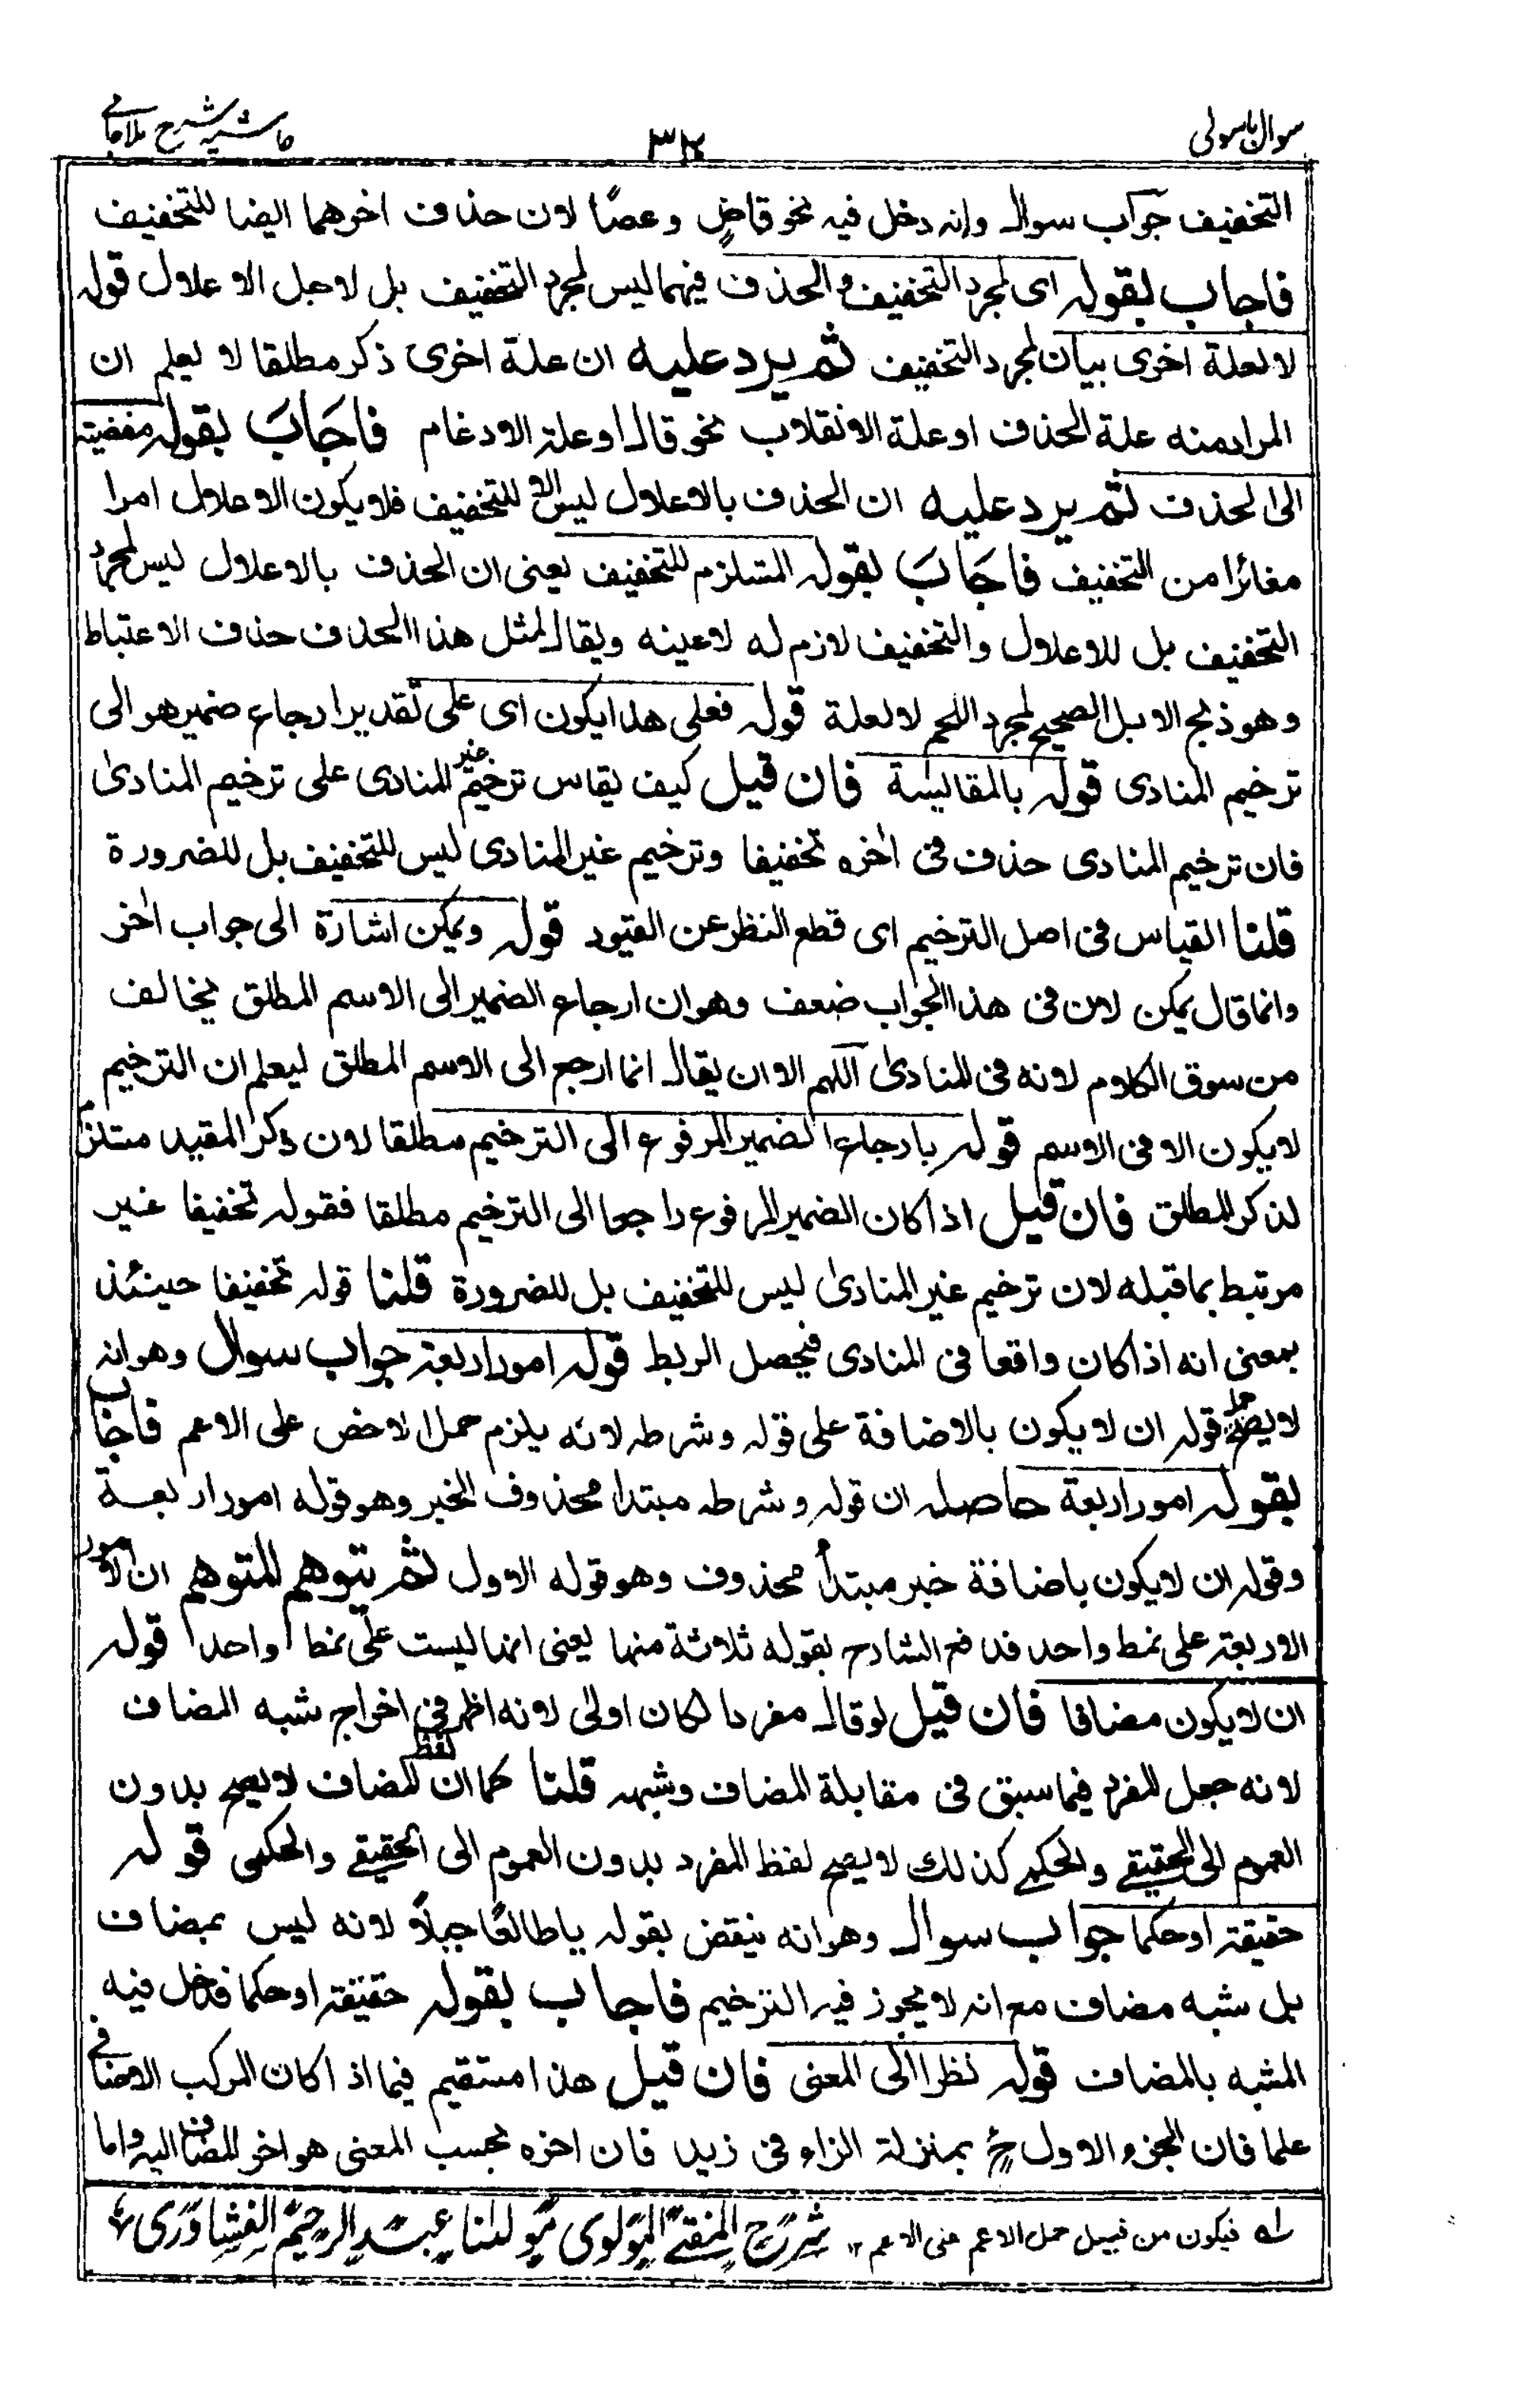 سوال باسولی
٣٢٤
حاشیہ شرح ملا جامی
التخفيف جواب سوال وانه دخل فيه نحو قاضٍ وعصًا لان حذف اخرهما ايضا للتخفيف
فاجاب بقوله اى لمجرد التخفيف والحذف فيهما ليس لمجرد التخفيف بل لاجل الاعلال قوله
لا لعلة اخرى بيان لمجرد التخفيف ثم يرد عليه ان علة اخرى ذكر مطلقا لا يعلم ان
المراد منه علة الحذف او علة الانقلاب نحو قال او علة الادغام فاجاب بقوله مفضية
الى الحذف ثم يرد عليه ان الحذف بالاعلال ليس الا للتخفيف فلا يكون الاعلال امرا
مغائرا من التخفيف فاجاب بقوله المستلزم للتخفيف يعنى ان الحذف بالاعلال ليس لمجرد
التخفيف بل للاعلال والتخفيف لازم له لاعينه ويقال لمثل هذا الحذف حذف الاعتباط
وهو ذبح الابل الصحيح لمجرد اللحم لا لعلة قوله فعلى هذا يكون اى على تقدير ارجاع ضمير هو الى
ترخيم المنادى قوله بالمقايسة فان قيل كيف يقاس ترخيم غير المنادى على ترخيم المنادى
فان ترخيم المنادى حذف فى اخره تخفيفا وترخيم غير المنادى ليس للتخفيف بل للضرورة
قلنا القياس فى اصل الترخيم اى قطع النظر عن القيود قوله ويمكن اشارة الى جواب اخر
وانما قال يمكن لان فى هذا الجواب ضعف وهو ان ارجاع الضمير الى الاسم المطلق يخالف
من سوق الكلام لانه فى المنادى اللهم الا ان يقال انما ارجع الى الاسم المطلق ليعلم ان الترخيم
لا يكون الا فى الاسم قوله بارجاع الضمير المرفوع الى الترخيم مطلقا لان ذكر المقيد مستلزم
لذكر المطلق فان قيل اذا كان الضمير المرفوع راجعا الى الترخيم مطلقا فقوله تخفيفا غير
مرتبط بما قبله لان ترخيم غير المنادى ليس للتخفيف بل للضرورة قلنا قوله تخفيفا حينئذ
بمعنى انه اذا كان واقعا فى المنادى فيحصل الربط قوله امور اربعة جواب سوال وهو انه
لا يصح حمل قوله ان لا يكون بالاضافة على قوله وشرطه لانه يلزم حمل الاخص على الاعم فاجاب
بقوله امور اربعة حاصله ان قوله وشرطه مبتدا محذوف الخبر وهو قوله امور اربعة
وقوله ان لا يكون باضافة خبر مبتدأ محذوف وهو قوله الاول ثم يتوهم المتوهم ان الامور
الاربعة على نمط واحد فدفع الشارح بقوله ثلاثة منها يعنى انها ليست على نمط واحد قوله
ان لا يكون مضافا فان قيل لو قال مفردا لكان اولى لانه اظهر فى اخراج شبه المضاف
لانه جعل المفرد فيما سبق فى مقابلة المضاف وشبهه قلنا كما ان لفظ المضاف لا يصح بدون
العموم الى الحقيقے والحكمے كذلك لا يصح لفظ المفرد بدون العموم الى الحقيقے والحكمى قوله
حقيقة او حكما جواب سوال وهو انه ينقض بقوله ياطالعًا جبلاً لانه ليس بمضاف
بل شبه مضاف مع انه لا يجوز فيه الترخيم فاجاب بقوله حقيقة او حكما فدخل فيه
المشبه بالمضاف قوله نظرا الى المعنى فان قيل هذا مستقيم فيما اذا كان المركب الاضافے
علما فان الجزء الاول ح بمنزلة الزاء فى زيد فان اخره بحسب المعنى هو اخر المضاف اليه واما
لـه فيكون من قبيل حمل الاعم على الاعم ١٢ شرح المفتے المولوى مولانا عبد الرحيم الفشاورى